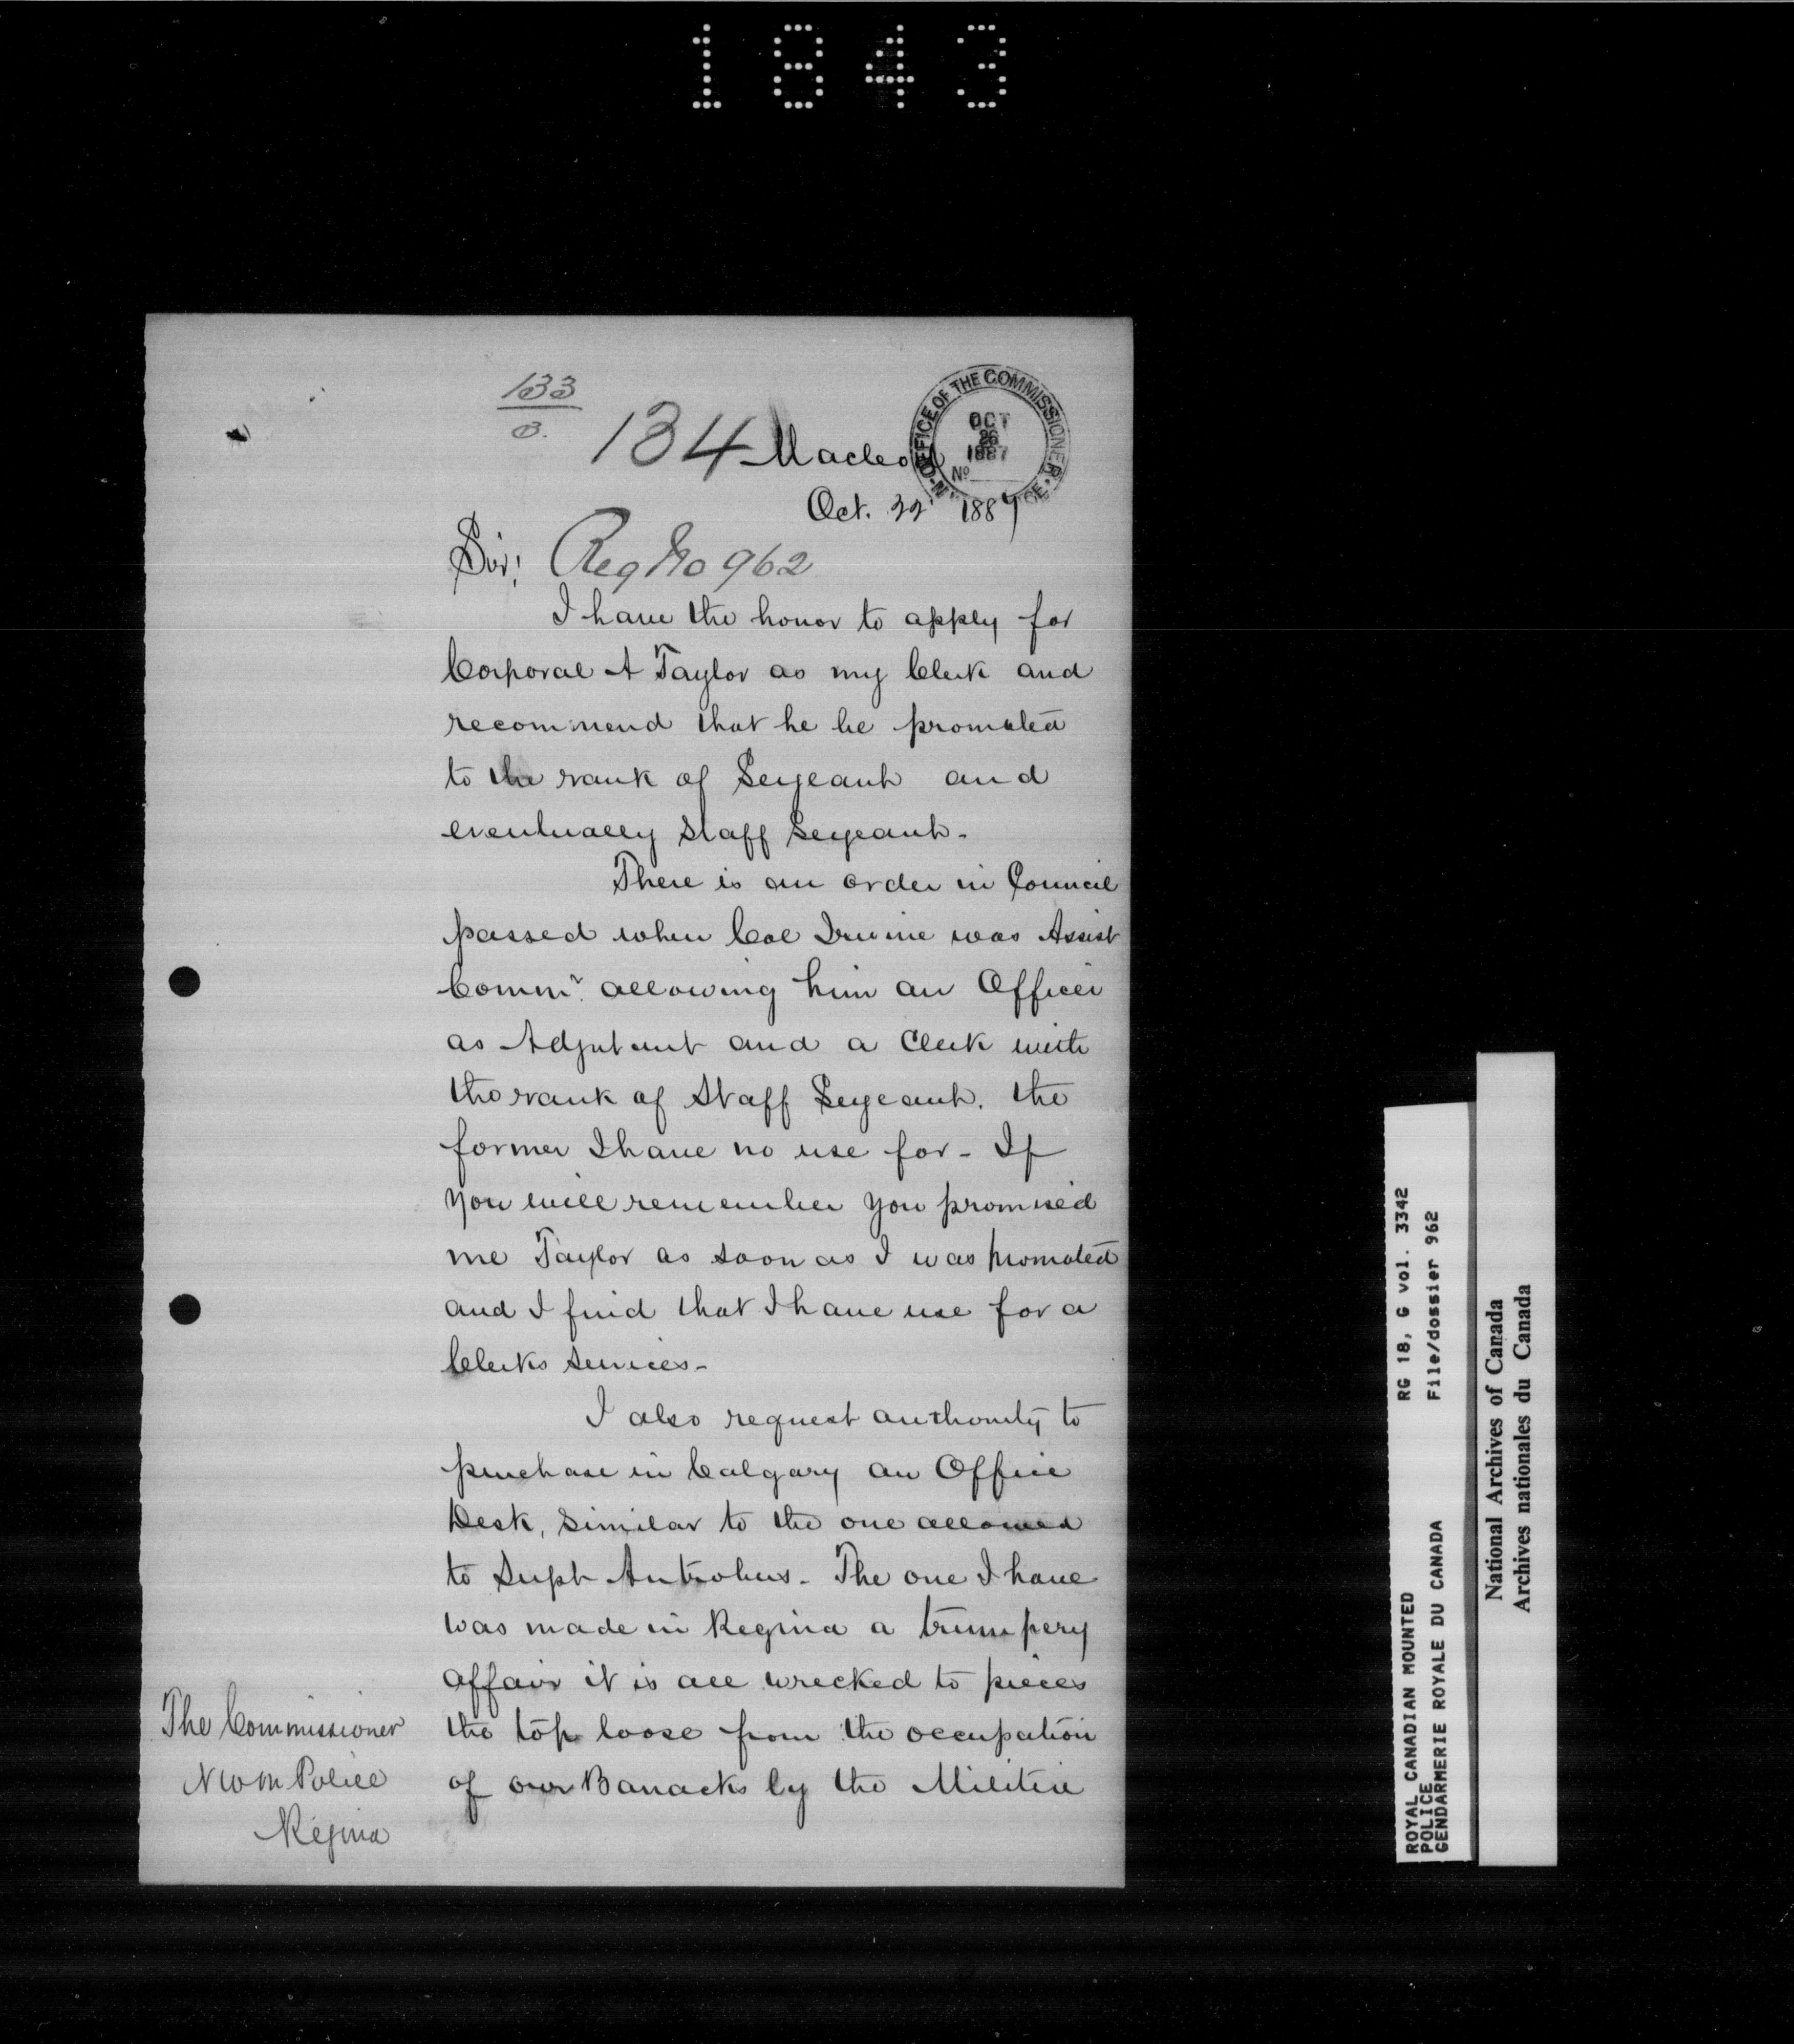 1843
133
B.
134 Macleod
OFFICE OF THE COMMISSIONER
OCT
26
1887
No
Oct. 22 1887
Sir! Reg No 962
I have the honor to apply for
Corporal A Taylor as my Clerk and
recommend that he be promoted
to the rank of Sergeant and
eventually Staff Sergeant -
There is an order in Council
passed when Col Irvine was Assist
Commr. allowing him an Officer
as Adjutant and a Clerk with
the rank of Staff Sergeant. the
former I have no use for - If
you will remember you promised
me Taylor as soon as I was promoted
and I find that I have use for a
Clerks services -
I also request authority to
purchase in Calgary an Office
Desk, similar to the one allowed
to Supt Antrobus - The one I have
was made in Regina a trumpery
affair it is all wrecked to pieces
the top loose from the occupation
of our Barracks by the Militia
The Commissioner
N W M Police
Regina
ROYAL CANADIAN MOUNTED
POLICE
GENDARMERIE ROYALE DU CANADA
RG 18, G vol. 3342
File/dossier 962
National Archives of Canada
Archives nationales du Canada